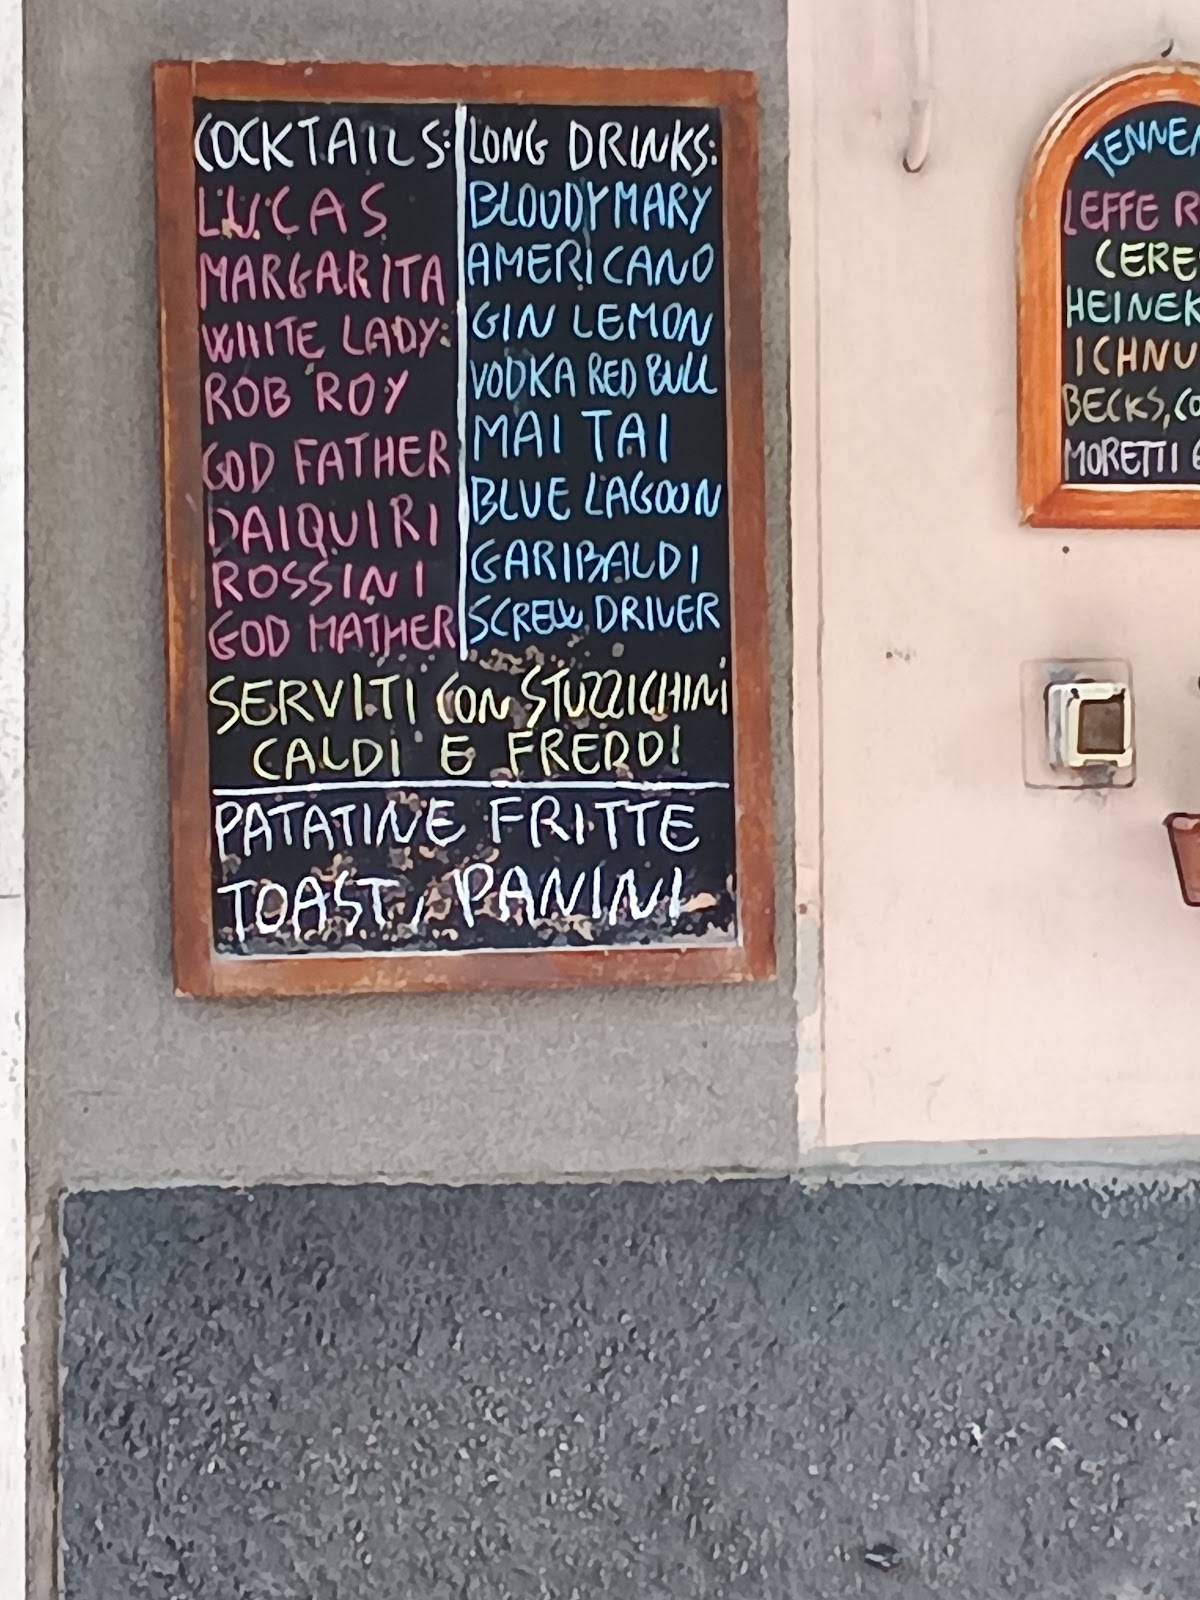 COCKTAILS:
LUCAS
MARGARITA
WHITE LADY:
ROB ROY
GOD FATHER
DAIQUIRI
ROSSINI
GOD MATHER
LONG DRINKS:
BLOODY MARY
AMERICANO
GIN LEMON
VODKA RED BULL
MAI TAI
BLUE LAGOON
GARIBALDI
SCREW DRIVER
SERVITI CON STUZZICHINI
CALDI E FREDDI
PATATINE FRITTE
TOAST, PANINI
TENNE
LEFFE R
CERE
HEINEK
ICHNU
BECKS, CO
MORETTI